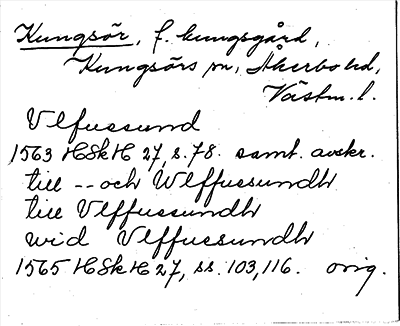 Kungsör, f. kungsgård,
Kungsörs sn, Åkerbo hd,
Västm. l.
Vlfussund
1563 HSkH 27, s. 78. samt. avskr.
till -- och Wlffussundh
till Vlffussundh
wid Vlffussundh
1565 HSkH 27, ss. 103, 116. orig.